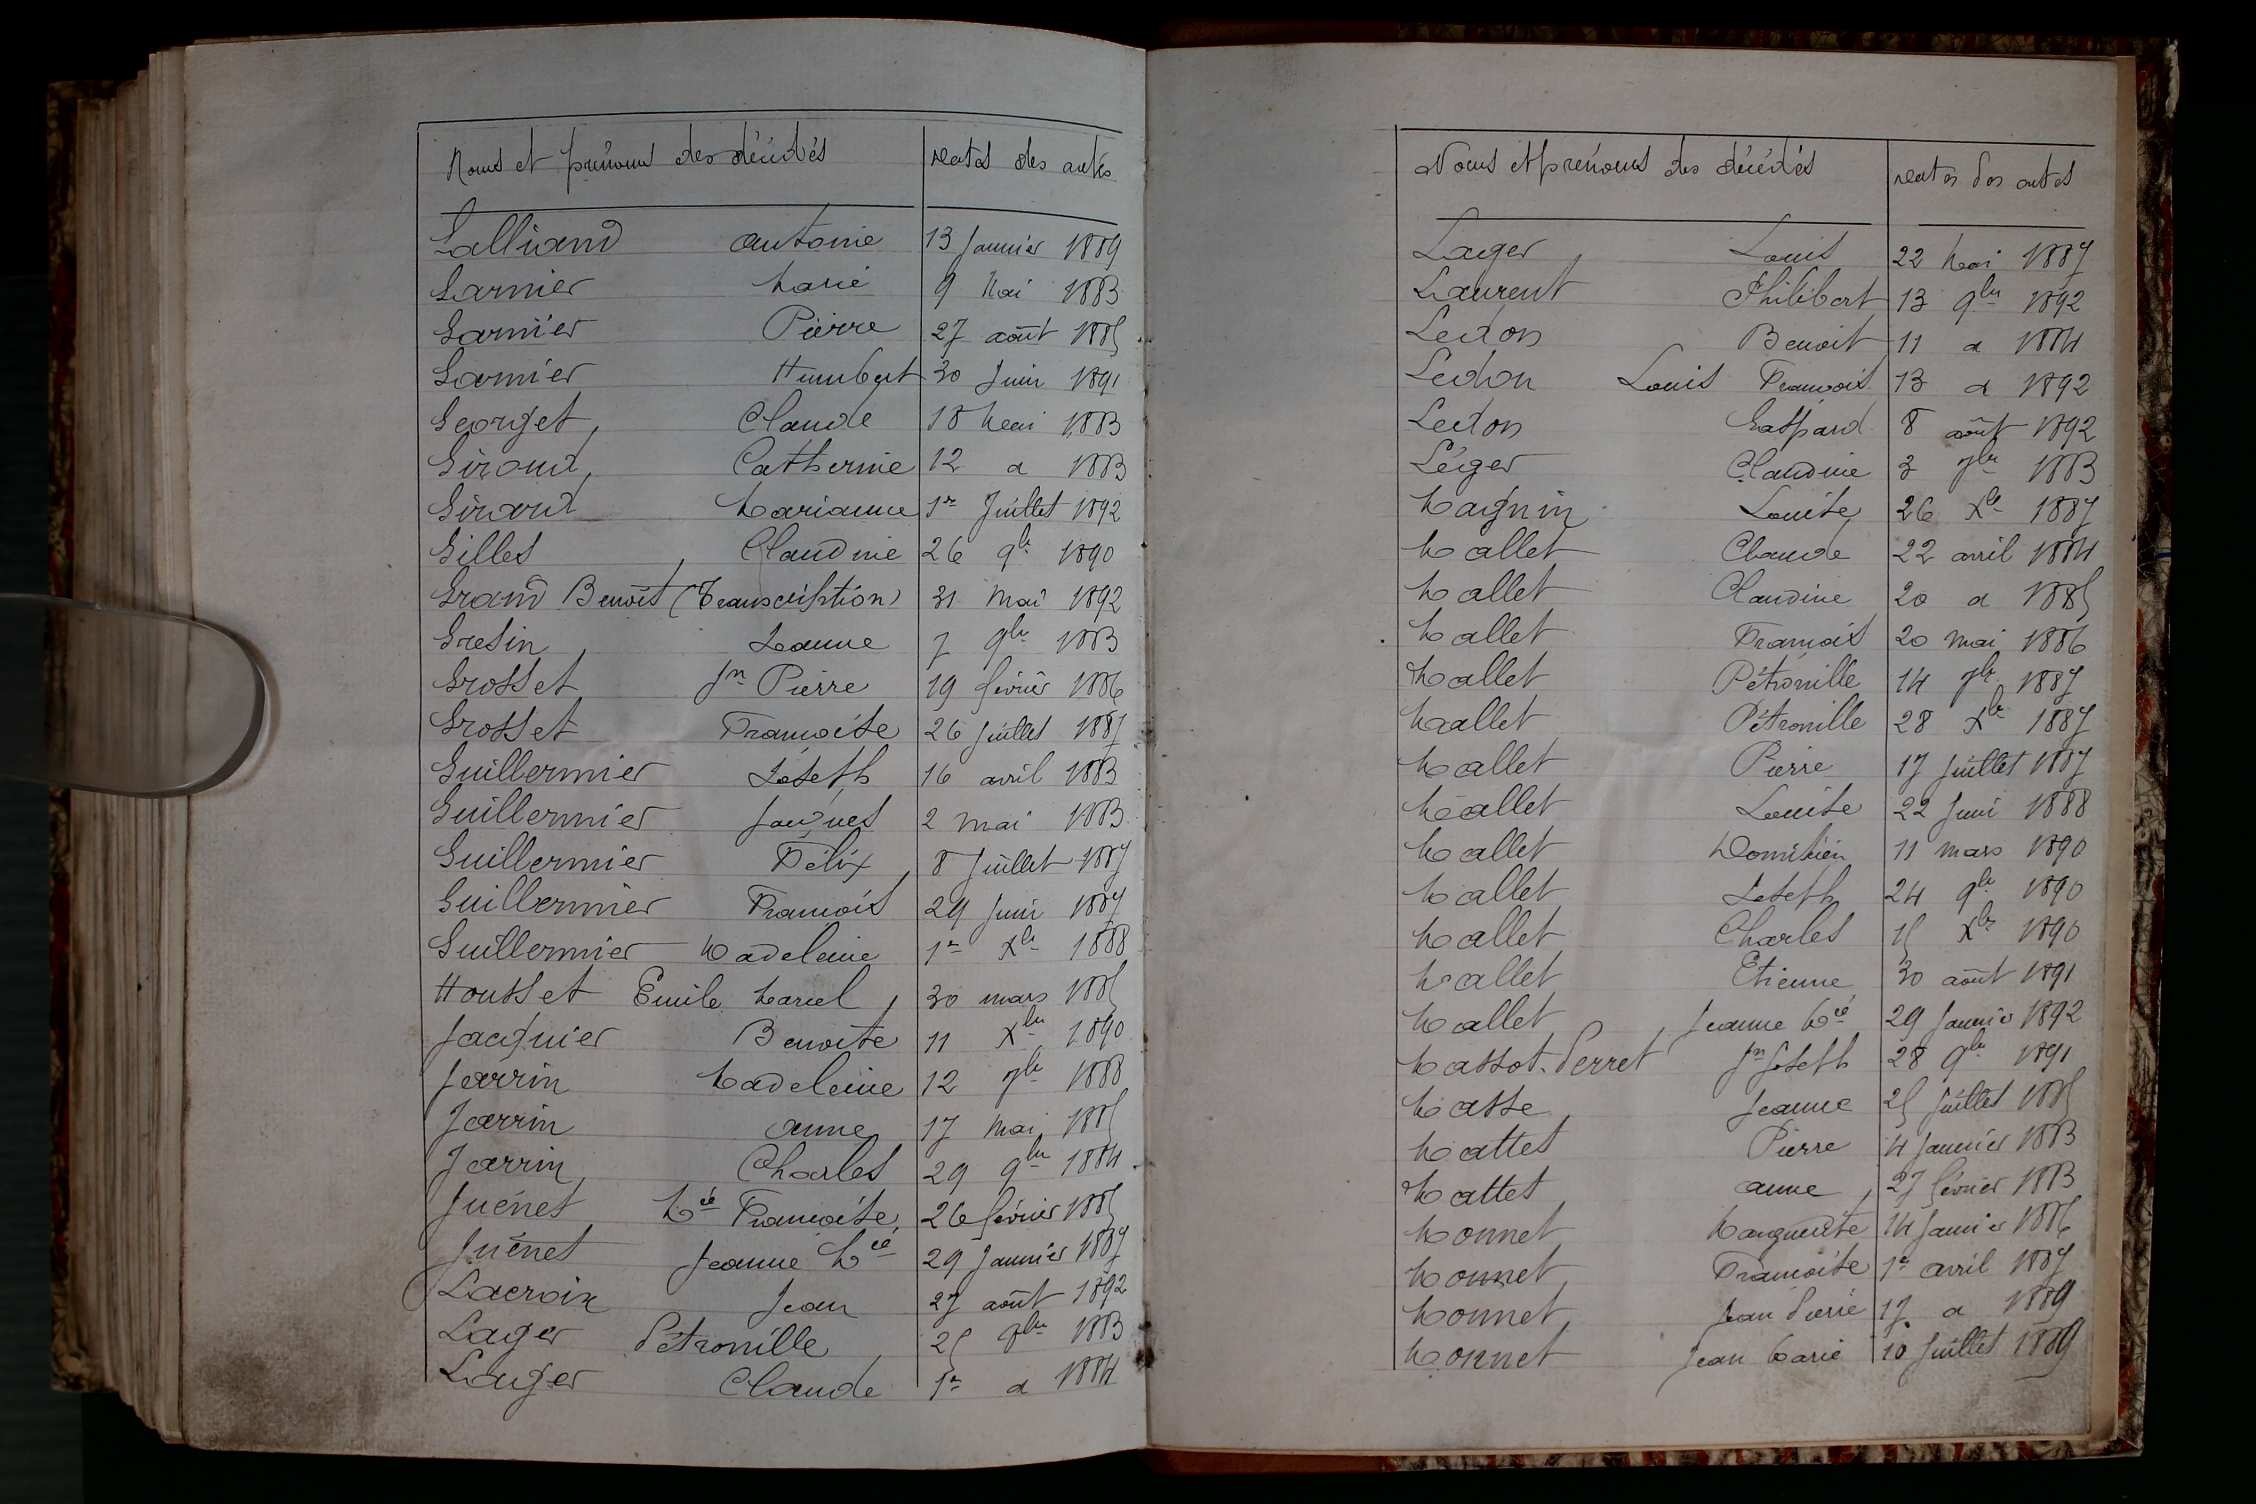 Noms et prénoms des décédés dates des actes
Galliand Antonie 13 Janvier 1889
Garnier Marie 9 Mai 1883
Garnier Pierre 27 août 1885
Garnier Humbert 30 Juin 1891
Georget Claude 18 Mai 1883
Giroud Catherine 12 d 1883
Girard Marianne 1er Juillet 1892
Gilles Claudine 26 9bre 1890
Grand Benoît (Transcription) 31 Mai 1892
Gresin Jeanne 7 9bre 1883
Grosset Jn Pierre 19 février 1886
Grosset Françoise 26 Juillet 1887
Guillermier Joseph 16 avril 1883
Guillermier Jacques 2 Mai 1883
Guillermier Félix 8 Juillet 1887
Guillermier François 29 Juin 1887
Guillermier Madeleine 1er Xbre 1888
Housset Emile Marcel 30 mars 1885
Jacquier Benoîte 11 Xbre 1890
Jarrin Madeleine 12 7bre 1888
Jarrin Anne 17 Mai 1885
Jarrin Charles 29 9bre 1884
Juénet Mie Françoise 26 février 1885
Juénet Jeanne Mie 29 Janvier 1887
Lacroix Jean 27 août 1892
Lager Pétronille 25 7bre 1883
Lager Claude 1er d 1884
Noms et prénoms des décédés dates des actes
Lager Louis 22 Mai 1887
Laurent Philibert 13 9bre 1892
Ledon Benoit 11 d 1884
Ledon Louis François 13 d 1892
Ledon Gaspard 8 août 1892
Léger Claudine 3 7bre 1883
Magnin Louise 26 Xbre 1887
Mallet Claude 22 avril 1884
Mallet Claudine 20 d 1885
Mallet François 20 Mai 1886
Mallet Pétronille 14 7bre 1887
Mallet Pétronille 28 Xbre 1887
Mallet Pierre 17 Juillet 1887
Mallet Louise 22 Juin 1888
Mallet Domitien 11 mars 1890
Mallet Joseph 24 9bre 1890
Mallet Charles 15 Xbre 1890
Mallet Etienne 30 août 1891
Mallet Jeanne Mie 29 Janvier 1892
Massot-Perret Jn Joseph 28 9bre 1891
Masse Jeanne 25 Juillet 1885
Mattet Pierre 4 Janvier 1883
Mattet Anne 27 février 1883
Monnet Marguerite 14 Janvier 1886
Monnet Françoise 1er avril 1887
Monnet Jean Pierre 17 d 1889
Monnet Jean Marie 10 Juillet 1889